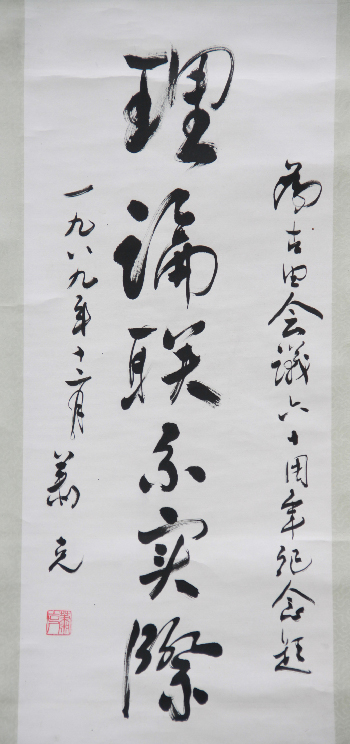 为古田会议六十周年纪念题
理論联系实際
一九八九年十二月 萧克